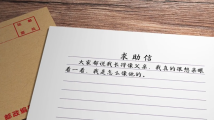 求助信
大家都说我长得像父亲，我真的很想亲眼
看一看，我是怎么像他的。